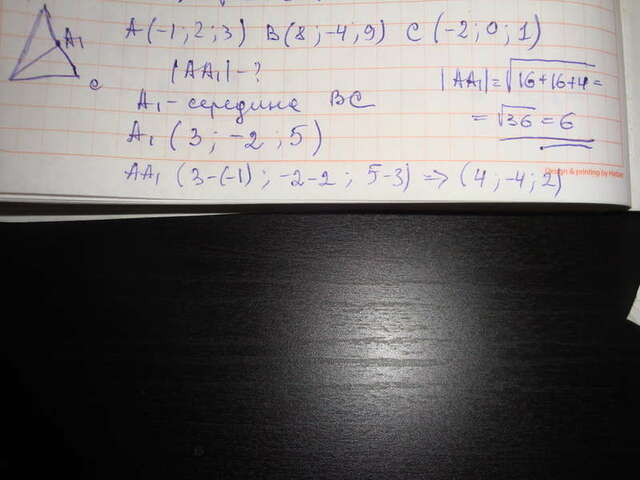 A(-1; 2; 3) B(8; -4; 9) C(-2; 0; 1)
A₁
C
|AA₁| - ?
A₁ - середина BC
A₁ (3; -2; 5)
AA₁ (3-(-1); -2-2; 5-3) => (4; -4; 2)
|AA₁| = √16+16+4 =
= √36 = 6
Design & printing by